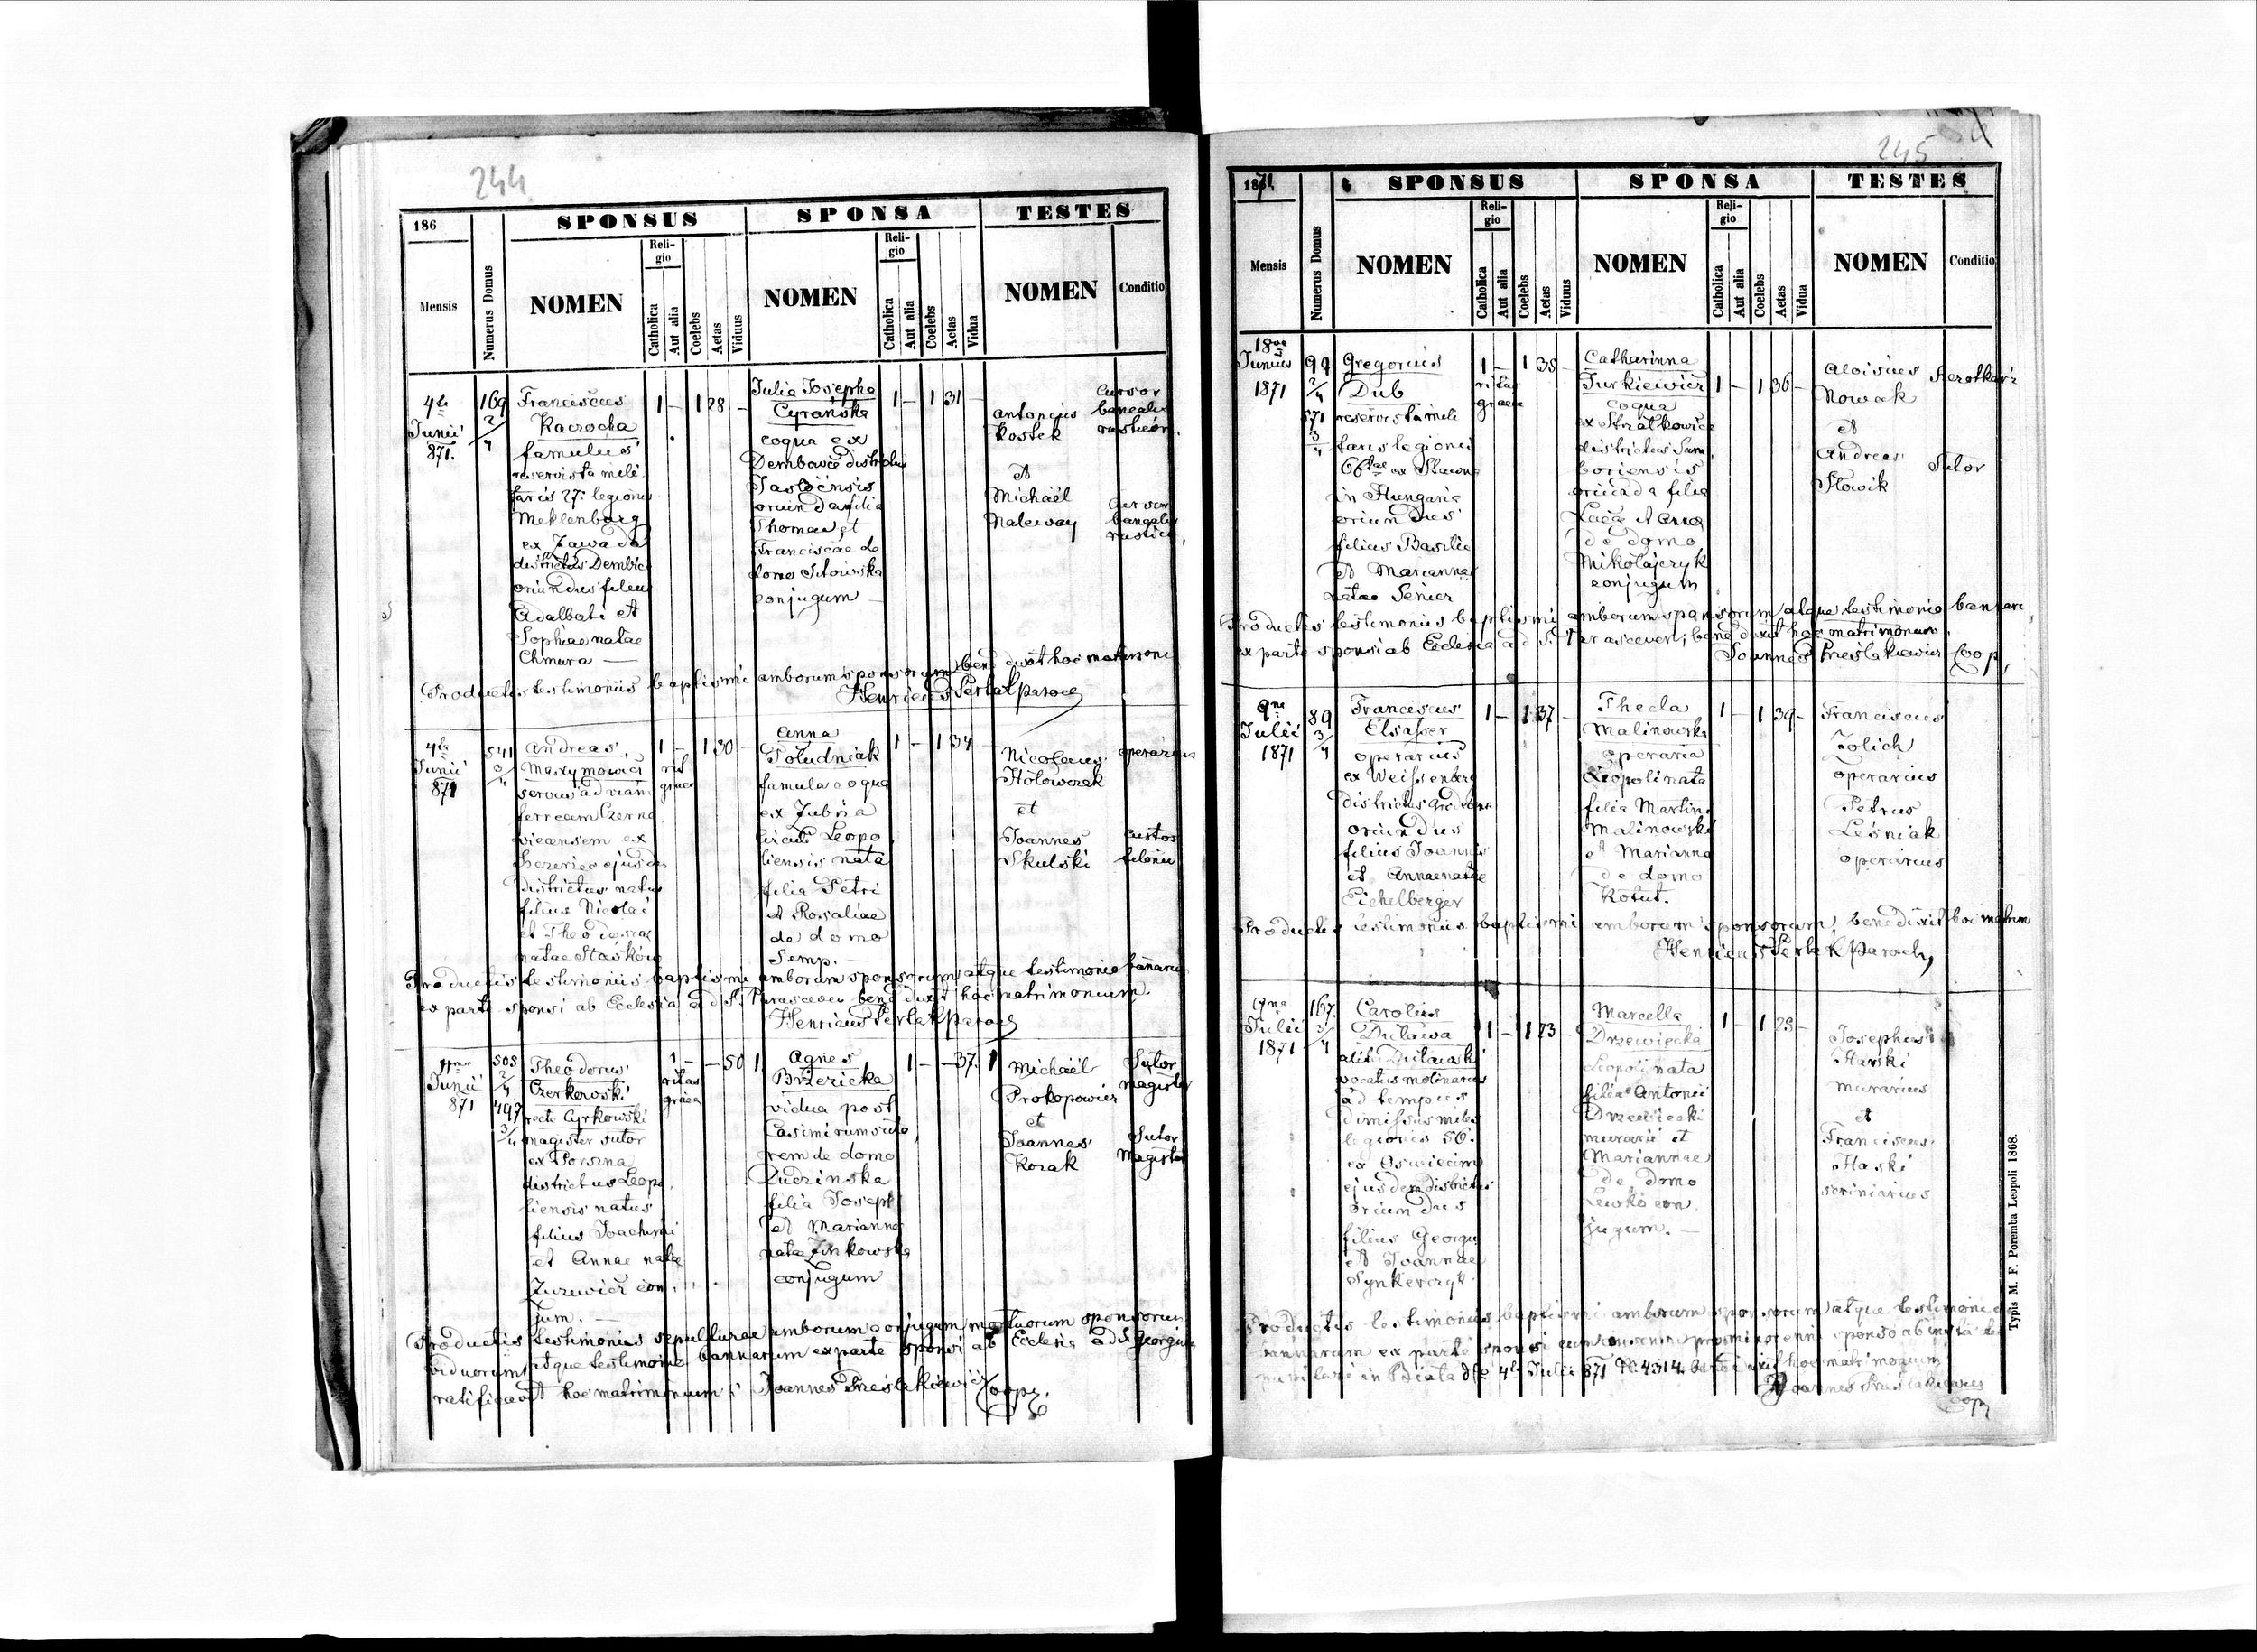 244
186
SPONSUS
SPONSA
TESTES
Mensis
Numerus Domus
NOMEN
Religio
Catholica
Aut alia
Coelebs
Aetas
Viduus
NOMEN
Religio
Catholica
Aut alia
Coelebs
Aetas
Vidua
NOMEN
Conditio
4ta
Junii
871.
169
2/4
Franciscus
famulus
reservista mili
taris 27. legionis
Meklenburg
ex Zawada
districtus Dembic
oriundus filius
Adalbati et
Sophiae natae
Chmura —
1 — 1 28 —
Julia Josepha
Cyrańska
coqua ex
Dembowce districtus
Jasłoensis
oriunda filia
Thomae et
Franciscae de
domo
conjugum —
1 — 1 31 —
Antonius
Kostek
et
Michaël
Naleway
cursor
Productis testimoniis baptismi amborum sponsorum benedixit hoc matrimoni
Henricus Perlak paroch
4ta
Junii
871
541
3/4
Andreas
Maxymowicz
servus ad viam
ferream Czerno
vicensem ex
districtus natus
filius Nicolai
et Theodosiae
natae Staśków
1 — 1 30 —
rit
graec
Anna
Południak
famula coqua
ex Zubrza
circuli Leopo
liensis nata
filia Petri
et Rosaliae
de domo
Semp. —
1 — 1 34
Nicolaus
Hołowczak
et
Joannes
Skulski
operarius
custos
Productis testimoniis baptismi amborum sponsorum atque testimonio bannaru
ex parte sponsi ab Ecclesia ad S. Parasceven benedixit hoc matrimonium.
Henricus Perlak paroch
11ma
Junii
871
505
2/4
497
3/4
Theodorus
Czerkowski
recte Cyrkowski
magister sutor
ex Porszna
districtus Leopo
liensis natus
filius Joachimi
et Annae natae
Zurewicz con
jum. —
1 — — 50 1
ritus
graeci
Agnes
Brzezicka
vidua post
Casimirum suto
rem de domo
Rudzinska
filia Josephi
et Marianna
natae Zinkowska
conjugum
1 — — 37. 1
Michaël
Prokopowicz
et
Joannes
Kozak
Sutor
magister
Sutor
Magister
Productis testimoniis sepulturae amborum conjugum mortuorum sponsorum
viduorum atque testimonio bannarum ex parte sponsi ab Ecclesia ad S. Georgium
ratificavit hoc matrimonium. Joannes Prestakiewicz Coop.
245
1871.
SPONSUS
SPONSA
TESTES
Mensis
Numerus Domus
NOMEN
Religio
Catholica
Aut alia
Coelebs
Aetas
Viduus
NOMEN
Religio
Catholica
Aut alia
Coelebs
Aetas
Vidua
NOMEN
Conditio
18va
Junii
1871
99
2/4
571
3/4
Gregorius
Dub
reservista mili
taris legionis
66tae ex
in Hungaria
oriundus
filius Basilii
et Marianna
natae Senier
1 — 1 35 —
ritus
graeci
Catharinna
Turkiewicz
coqua
ex
districtus Sam
boriensis
oriunda filia
Lucae et Anna
de domo
Mikołajczyk
conjugum
1 — 1 36 —
Aloisius
Nowak
et
Andreas
Słowik
Sutor
Productis testimoniis baptismi amborum sponsorum atque testimonio bannaru
ex parte sponsi ab Ecclesia ad S. Parasceven, benedixit hoc matrimonium.
Joannes Prestakiewicz Coop,
9na
Julii
1871
89
3/4
Franciscus
Elsasser
operarius
ex Weissenberg
districtus
oriundus
filius Joannis
et Annae natae
Eichelberger
1 — 1 37 —
Thecla
Malinowska
operaria
Leopoli nata
filia Martini
Malinowski
et Marianna
de domo
Kotut.
1 — 1 39 —
Franciscus
Zolich
operarius
Petrus
Leśniak
operarius
Productis testimoniis baptismi amborum sponsorum, benedixit hoc matrim
Henricus Perlak Paroch,
9na
Julii
1871
167.
3/4
Carolus
Dulawa
alit. Dulawski
vocatus molinarius
ad tempus
dimissus miles
legionis 56.
ex Oswiecim
ejusdem districtus
oriundus
filius Georgii
et Joannae
Synkerczyk.
1 — 1 23 —
Marcella
Drzewiecka
Leopoli nata
filia Antonii
Drzewiecki
murarii et
Mariannae
de domo
Lewko con
jugum. —
1 — 1 23 —
Josephus
Harski
murarius
et
Franciscus
Haski
scriniarius
Productis testimoniis baptismi amborum sponsorum atque testimonio
bannarum ex parte sponsi
in Biała dto 4ta Julii 871 N. 4314 benedixit hoc matrimonium
Joannes Prestakiewicz
Coop
Typis M. F. Poremba Leopoli 1868.